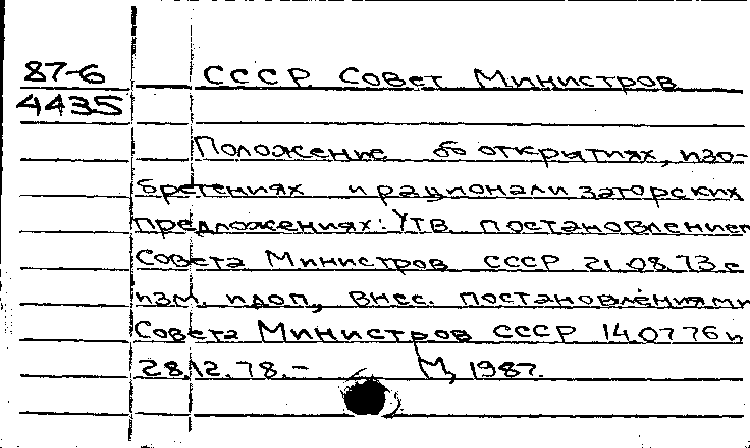 87-6 СССР. Совет Министров
4435
Положение об открытиях, изо-
бретениях и рационализаторских
предложениях: Утв. постановлением
Совета Министров СССР 21.08.73 с
изм. и доп., внес. постановлениями
Совета Министров СССР 14.07.76 и
28.12.78.- М, 1987.